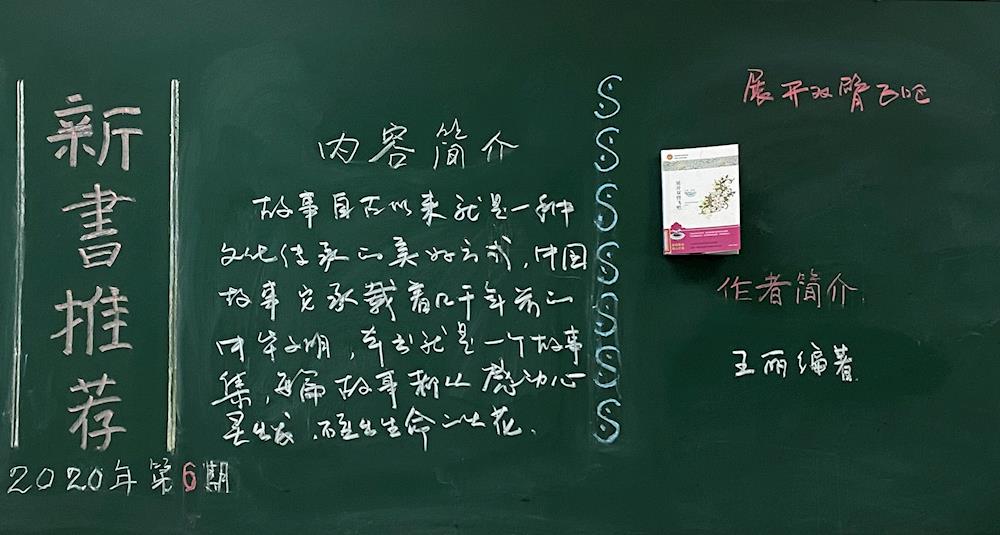 新書推荐
2020年第6期
内容简介
故事自古以来就是一种
文化传承的美好方式,中国
故事更承载着几千年前的
中华文明,本书就是一个故事
集,每篇故事都从感动心
灵出发,
生命之花.
展开双臂飞吧
展开双臂飞吧
作者简介
王丽编著